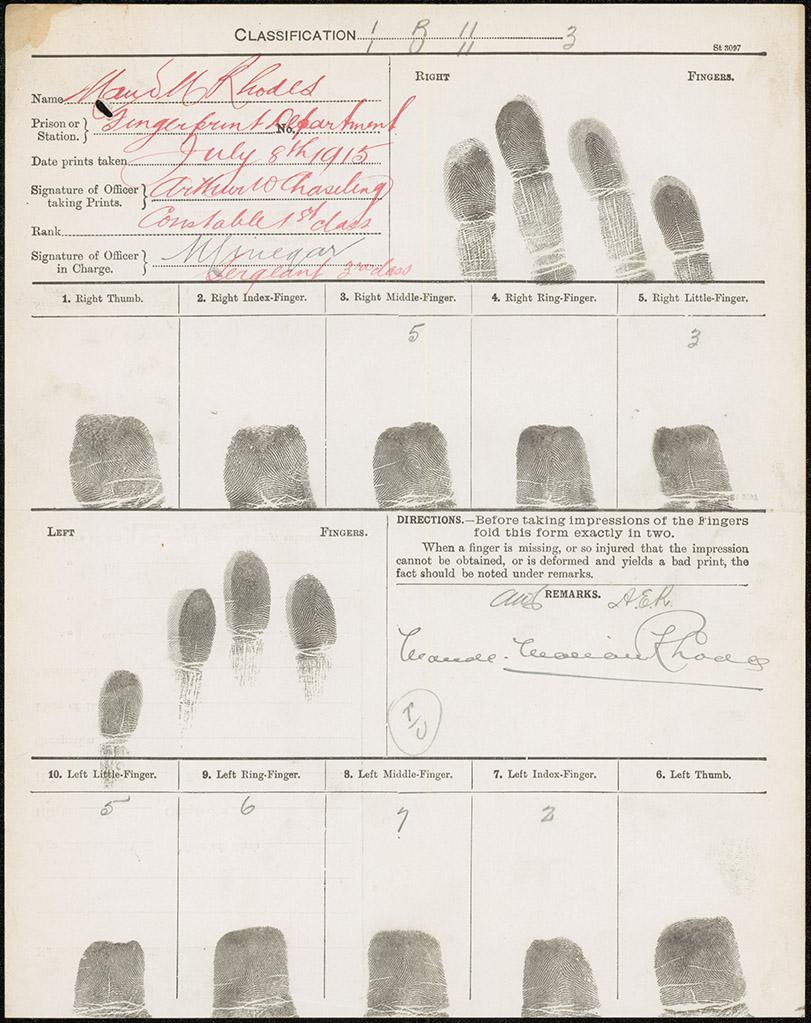 CLASSIFICATION 1 R 11 3
1 U 11
St 3097
Name Maud M Rhodes
Prison or Station. } Fingerprint Department No.
Date prints taken July 8th 1915
Signature of Officer taking Prints. } Arthur W Chaseling
Rank Constable 1st class
Signature of Officer in Charge. }
Sergeant 3rd class
RIGHT FINGERS.
1. Right Thumb. 2. Right Index-Finger. 3. Right Middle-Finger. 4. Right Ring-Finger. 5. Right Little-Finger.
5 3
LEFT FINGERS.
DIRECTIONS.—Before taking impressions of the Fingers
fold this form exactly in two.
When a finger is missing, or so injured that the impression
cannot be obtained, or is deformed and yields a bad print, the
fact should be noted under remarks.
REMARKS.
Maude Marion Rhodes
10. Left Little-Finger. 9. Left Ring-Finger. 8. Left Middle-Finger. 7. Left Index-Finger. 6. Left Thumb.
5 6 7 2